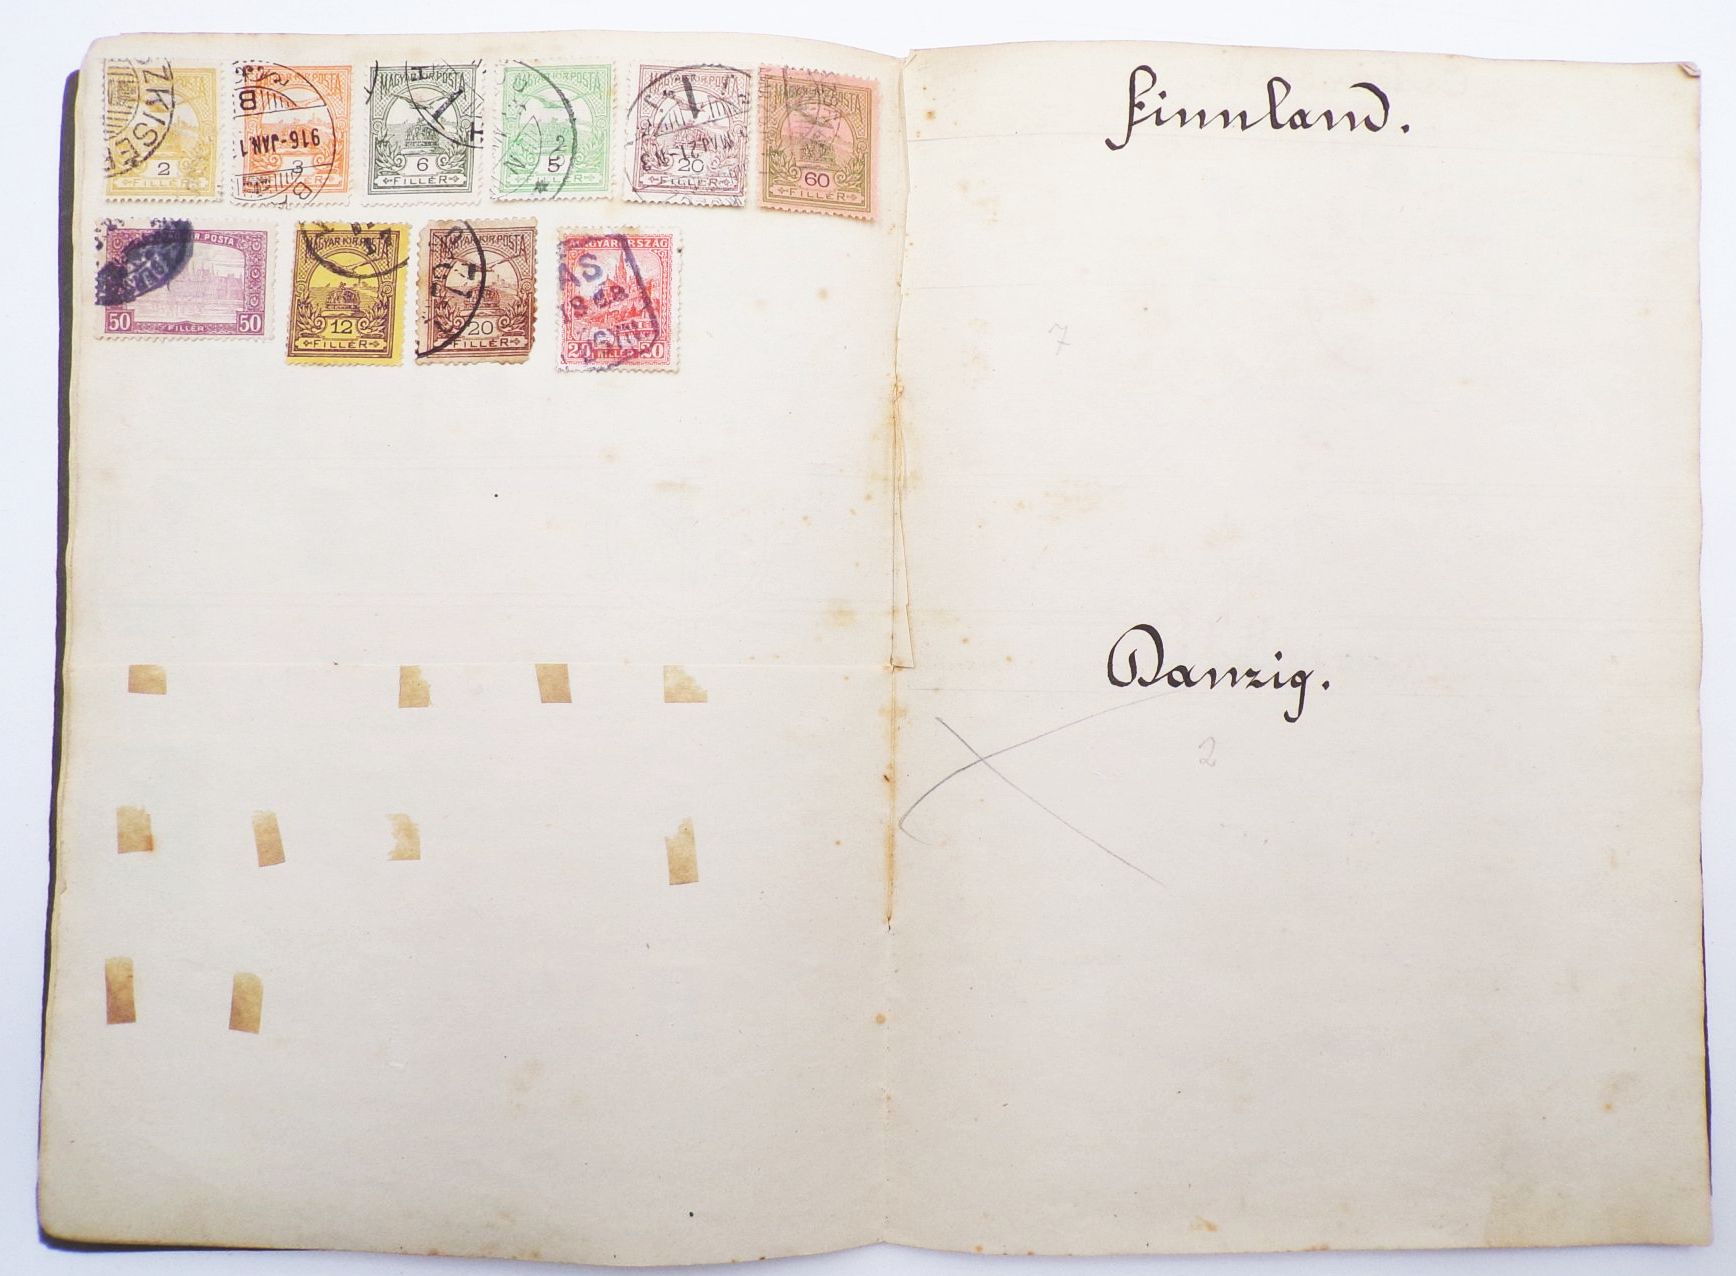 MAGYAR KIR. POSTA
2
FILLÉR
916-JAN 1
B
3
MAGYAR KIR. POSTA
6
FILLÉR
MAGYAR KIR. POSTA
5
FILLÉR
MAGYAR KIR. POSTA
20
FILLÉR
MAGYAR KIR. POSTA
60
FILLÉR
KIR. POSTA
50 FILLÉR 50
MAGYAR KIR. POSTA
12
FILLÉR
MAGYAR KIR. POSTA
20
FILLÉR
MAGYARORSZÁG
ÁS
20 20
Finnland.
7
Danzig.
2